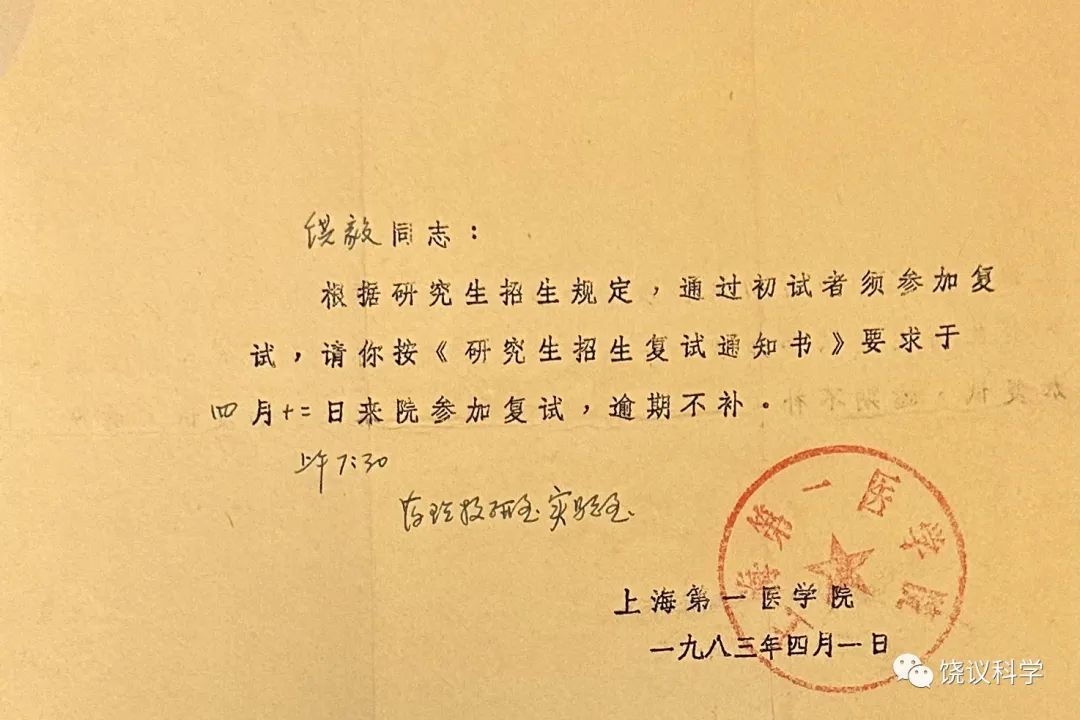 饶毅同志：
根据研究生招生规定，通过初试者须参加复
试，请你按《研究生招生复试通知书》要求于
四月十二日来院参加复试，逾期不补。
上午7:30
药理教研室实验室
上海第一医学院
上海第一医学院
一九八三年四月一日
饶议科学